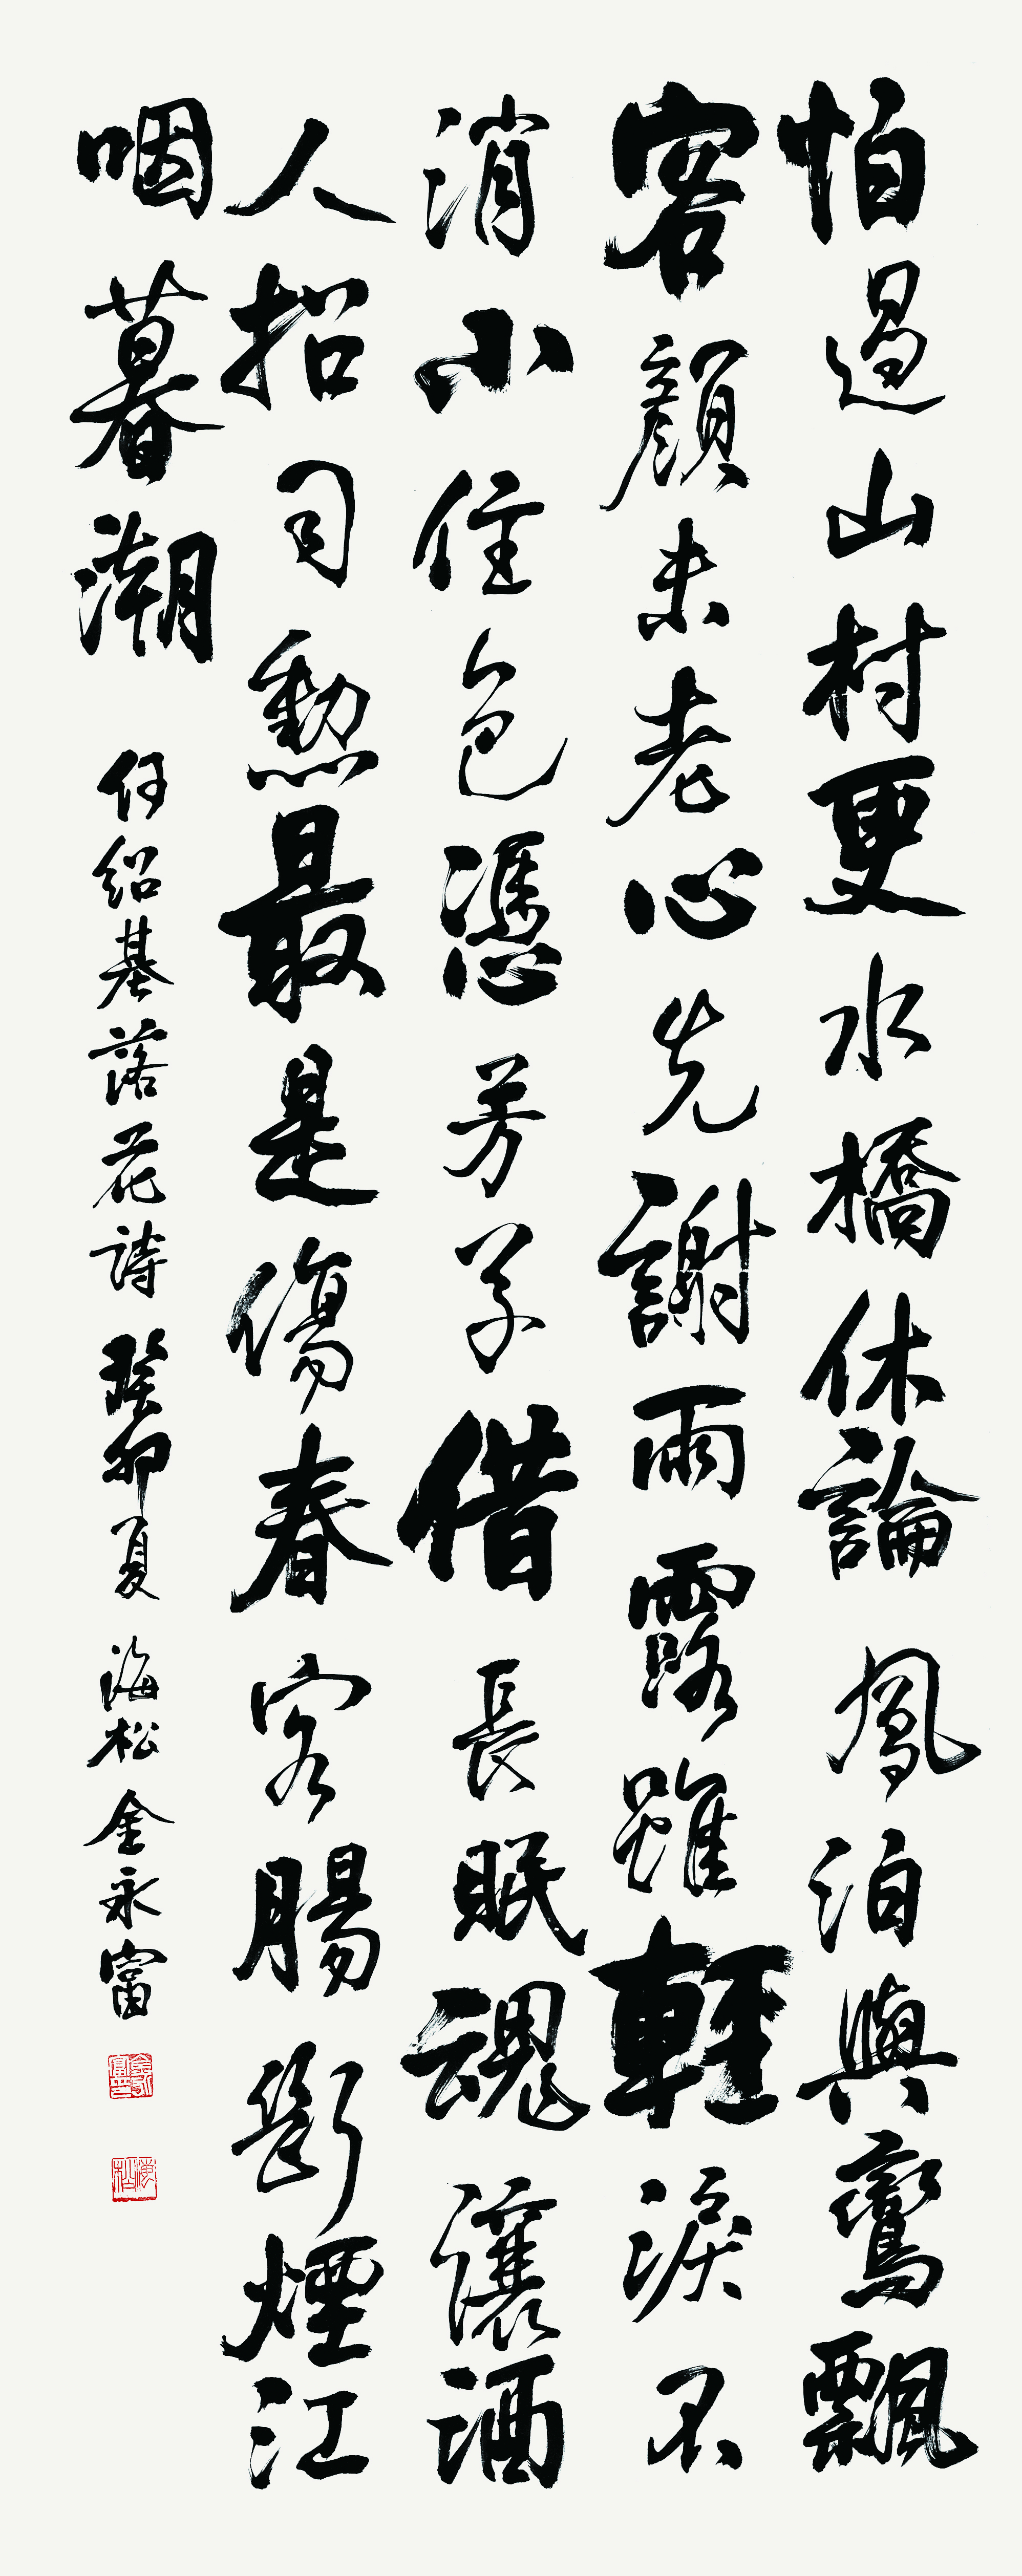 怕過山村更水橋休論鳳泊與鸞飄
容顏未老心先謝雨露雖輕淚不
消小住色憑芳草借長眠魂讓酒
人招司勳最是傷春客腸斷煙江
咽暮潮 何紹基落花詩 癸卯夏 海松 金永富
金永富印
海松